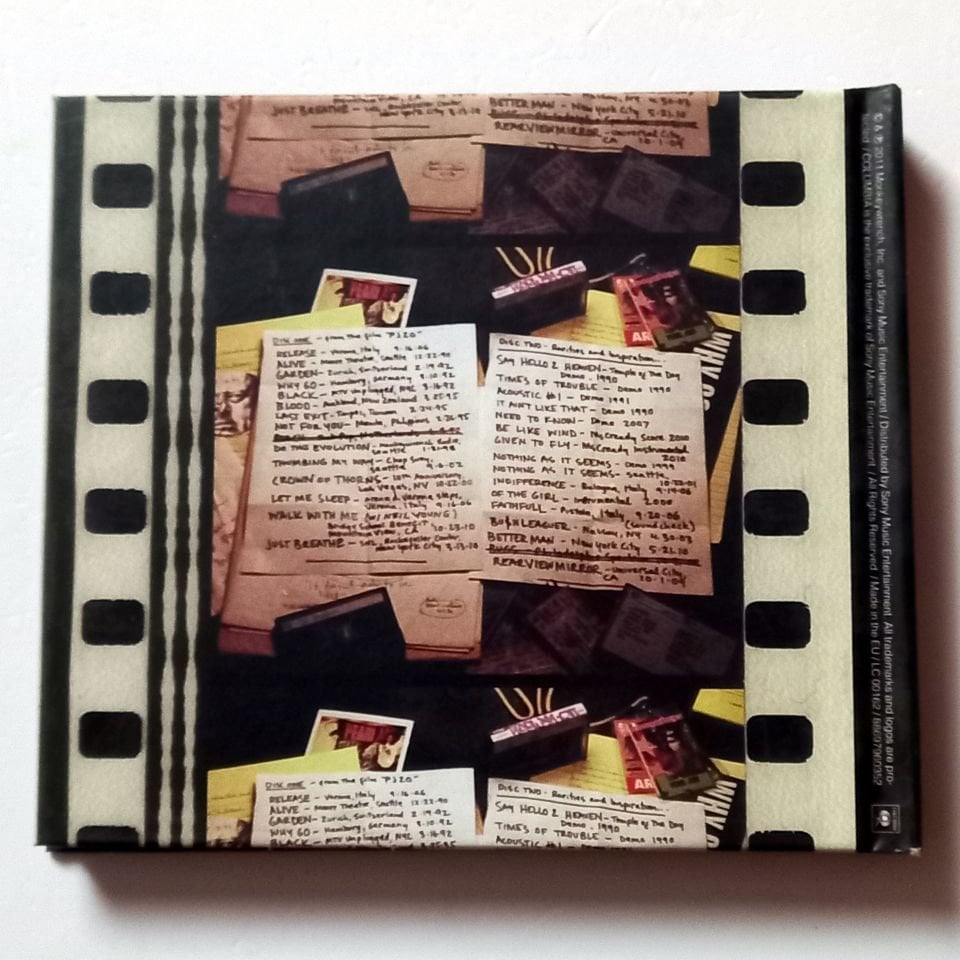 JUST BREATHE - SNL, Rockefeller Center,
New York City 3-13-10
BETTER MAN - New York City 5-21.10
REARVIEWMIRROR - Universal City,
CA 10-1-09
DISC ONE - from the film "PJ20"
RELEASE - Verona, Italy 9-16-06
ALIVE - Moore Theatre, Seattle 12-22-90
GARDEN - Zurich, Switzerland 2-19-92
WHY GO - Hamburg, Germany 3-10-92
BLACK - MTV Unplugged, NYC 3-16-92
BLOOD - Auckland, New Zealand 3-25-95
LAST EXIT - Taipei, Taiwan 2-24-95
NOT FOR YOU - Manila, Philippines 2-26-95
DO THE EVOLUTION - Monkeywrench Radio,
Seattle 1-31-98
THUMBING MY WAY - Chop Suey,
Seattle 9-6-02
CROWN OF THORNS - 10th Anniversary
Las Vegas, NV 10-22-00
LET ME SLEEP - Arena di Verona steps,
Verona, Italy 9-16-06
WALK WITH ME (w/ NEIL YOUNG)
Bridge School Benefit
Mountain View, CA 10-23-10
JUST BREATHE - SNL, Rockefeller Center,
New York City 3-13-10
DISC TWO - Rarities and Inspiration...
SAY HELLO 2 HEAVEN - Temple of The Dog
Demo, 1990
TIMES OF TROUBLE - Demo 1990
ACOUSTIC #1 - Demo 1991
IT AIN'T LIKE THAT - Demo 1990
NEED TO KNOW - Demo 2007
BE LIKE WIND - McCready Score 2010
GIVEN TO FLY - McCready Instrumental
2010
NOTHING AS IT SEEMS - Demo 1999
NOTHING AS IT SEEMS - Seattle,
10-22-01
INDIFFERENCE - Bologna, Italy 9-14-06
OF THE GIRL - Instrumental 2000
FAITHFULL - Pistoia, Italy 9-20-06
(soundcheck)
BU$HLEAGUER - Nassau, NY 4.30-03
BETTER MAN - New York City 5-21.10
REARVIEWMIRROR - Universal City
CA 10-1-09
DISC ONE - from the film "PJ20"
RELEASE - Verona, Italy 9-16-06
ALIVE - Moore Theatre, Seattle 12-22-90
GARDEN - Zurich, Switzerland 2-19-92
WHY GO - Hamburg, Germany 3-10-92
BLACK - MTV Unplugged, NYC 3-16-92
DISC TWO - Rarities and Inspiration...
SAY HELLO 2 HEAVEN - Temple of The Dog
Demo, 1990
TIMES OF TROUBLE - Demo 1990
ACOUSTIC #1 - Demo 1991
© & ℗ 2011 Monkeywrench, Inc. and Sony Music Entertainment / Distributed by Sony Music Entertainment. All trademarks and logos are pro-
tected. / COLUMBIA is the exclusive trademark of Sony Music Entertainment. / All Rights Reserved. / Made in the EU / LC 00162 / 88697960352